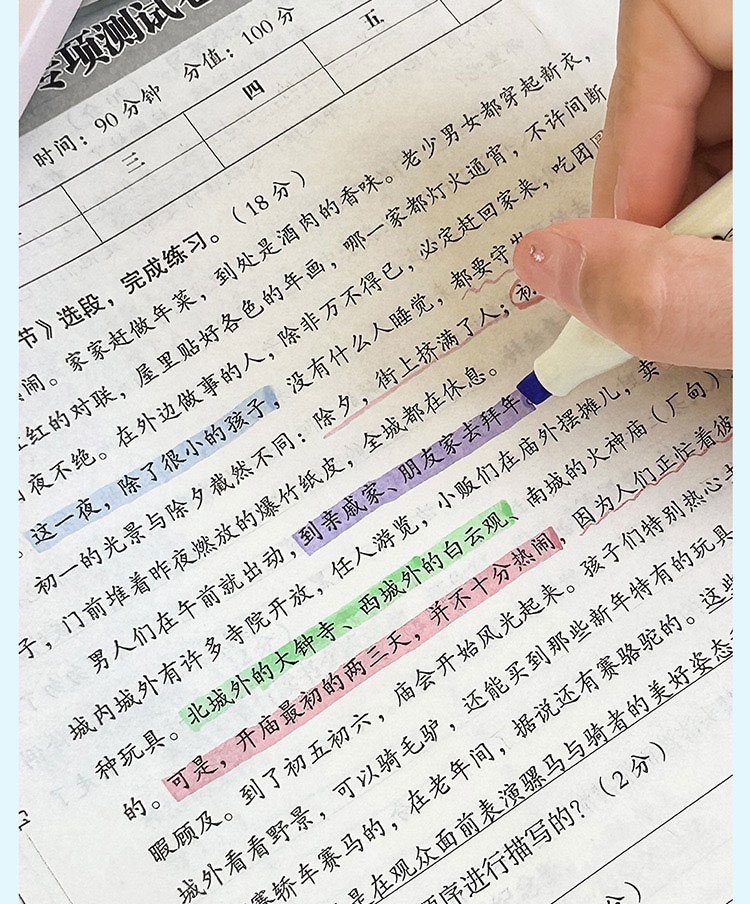 项测试
时间：90分钟 分值：100分
三 四 五
节》选段，完成练习。（18分）
闹。家家赶做年菜，到处是酒肉的香味。老少男女都穿起新衣，
红的对联，屋里贴好各色的年画，哪一家都灯火通宵，不许间断
夜不绝。在外边做事的人，除非万不得已，必定赶回家来，吃团
。这一夜，除了很小的孩子，没有什么人睡觉，都要守
初一的光景与除夕截然不同：除夕，街上挤满了人；初
子，门前堆着昨夜燃放的爆竹纸皮，全城都在休息。
男人们在午前就出动，到亲戚家、朋友家去拜年
城内城外有许多寺院开放，任人游览，小贩们在庙外摆摊儿，卖
种玩具。北城外的大钟寺、西城外的白云观、南城的火神庙（厂甸）
的。可是，开庙最初的两三天，并不十分热闹，因为人们正忙着彼
暇顾及。到了初五初六，庙会开始风光起来。孩子们特别热心
城外看看野景，可以骑毛驴，还能买到那些新年特有的玩具
赛轿车赛马的，在老年间，据说还有赛骆驼的。这些
是在观众面前表演骡马与骑者的美好姿态
顺序进行描写的？（2分）
分）